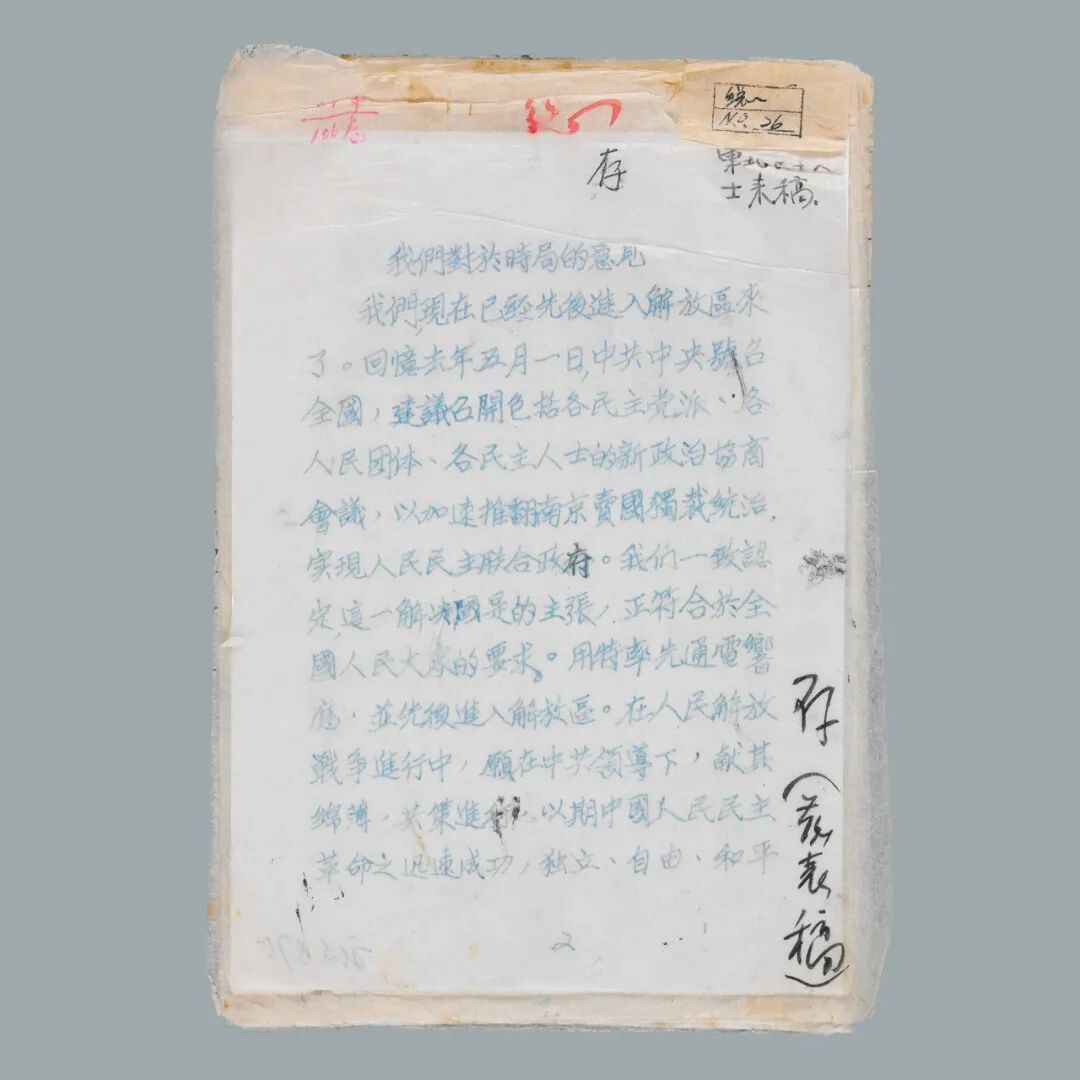 統一
NO. 26
存
士来稿.
我們對於時局的意見
我們現在已經先後進入解放區來
了。回憶去年五月一日,中共中央號召
全國,建議召開包括各民主党派、各
人民団体、各民主人士的新政治協商
會議,以加速推翻南京賣國獨裁統治,
实現人民民主联合政府。我们一致認
定這一解决國是的主張,正符合於全
國人民大众的要求。用特率先通電響
應,並先後進入解放區。在人民解放
戰争進行中,願在中共領導下,献其
綿薄,共策進行,以期中國人民民主
革命之迅速成功,独立、自由、和平
2
存(发表稿)